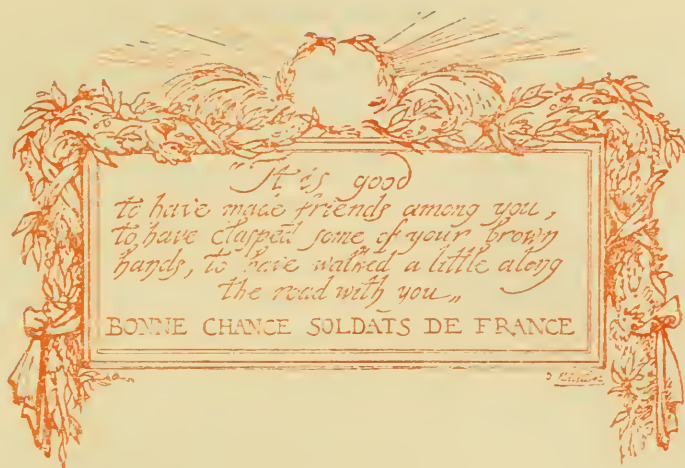 "It is good
to have made friends among you,
to have clasped some of your brown
hands, to have walked a little along
the road with you„
BONNE CHANCE SOLDATS DE FRANCE